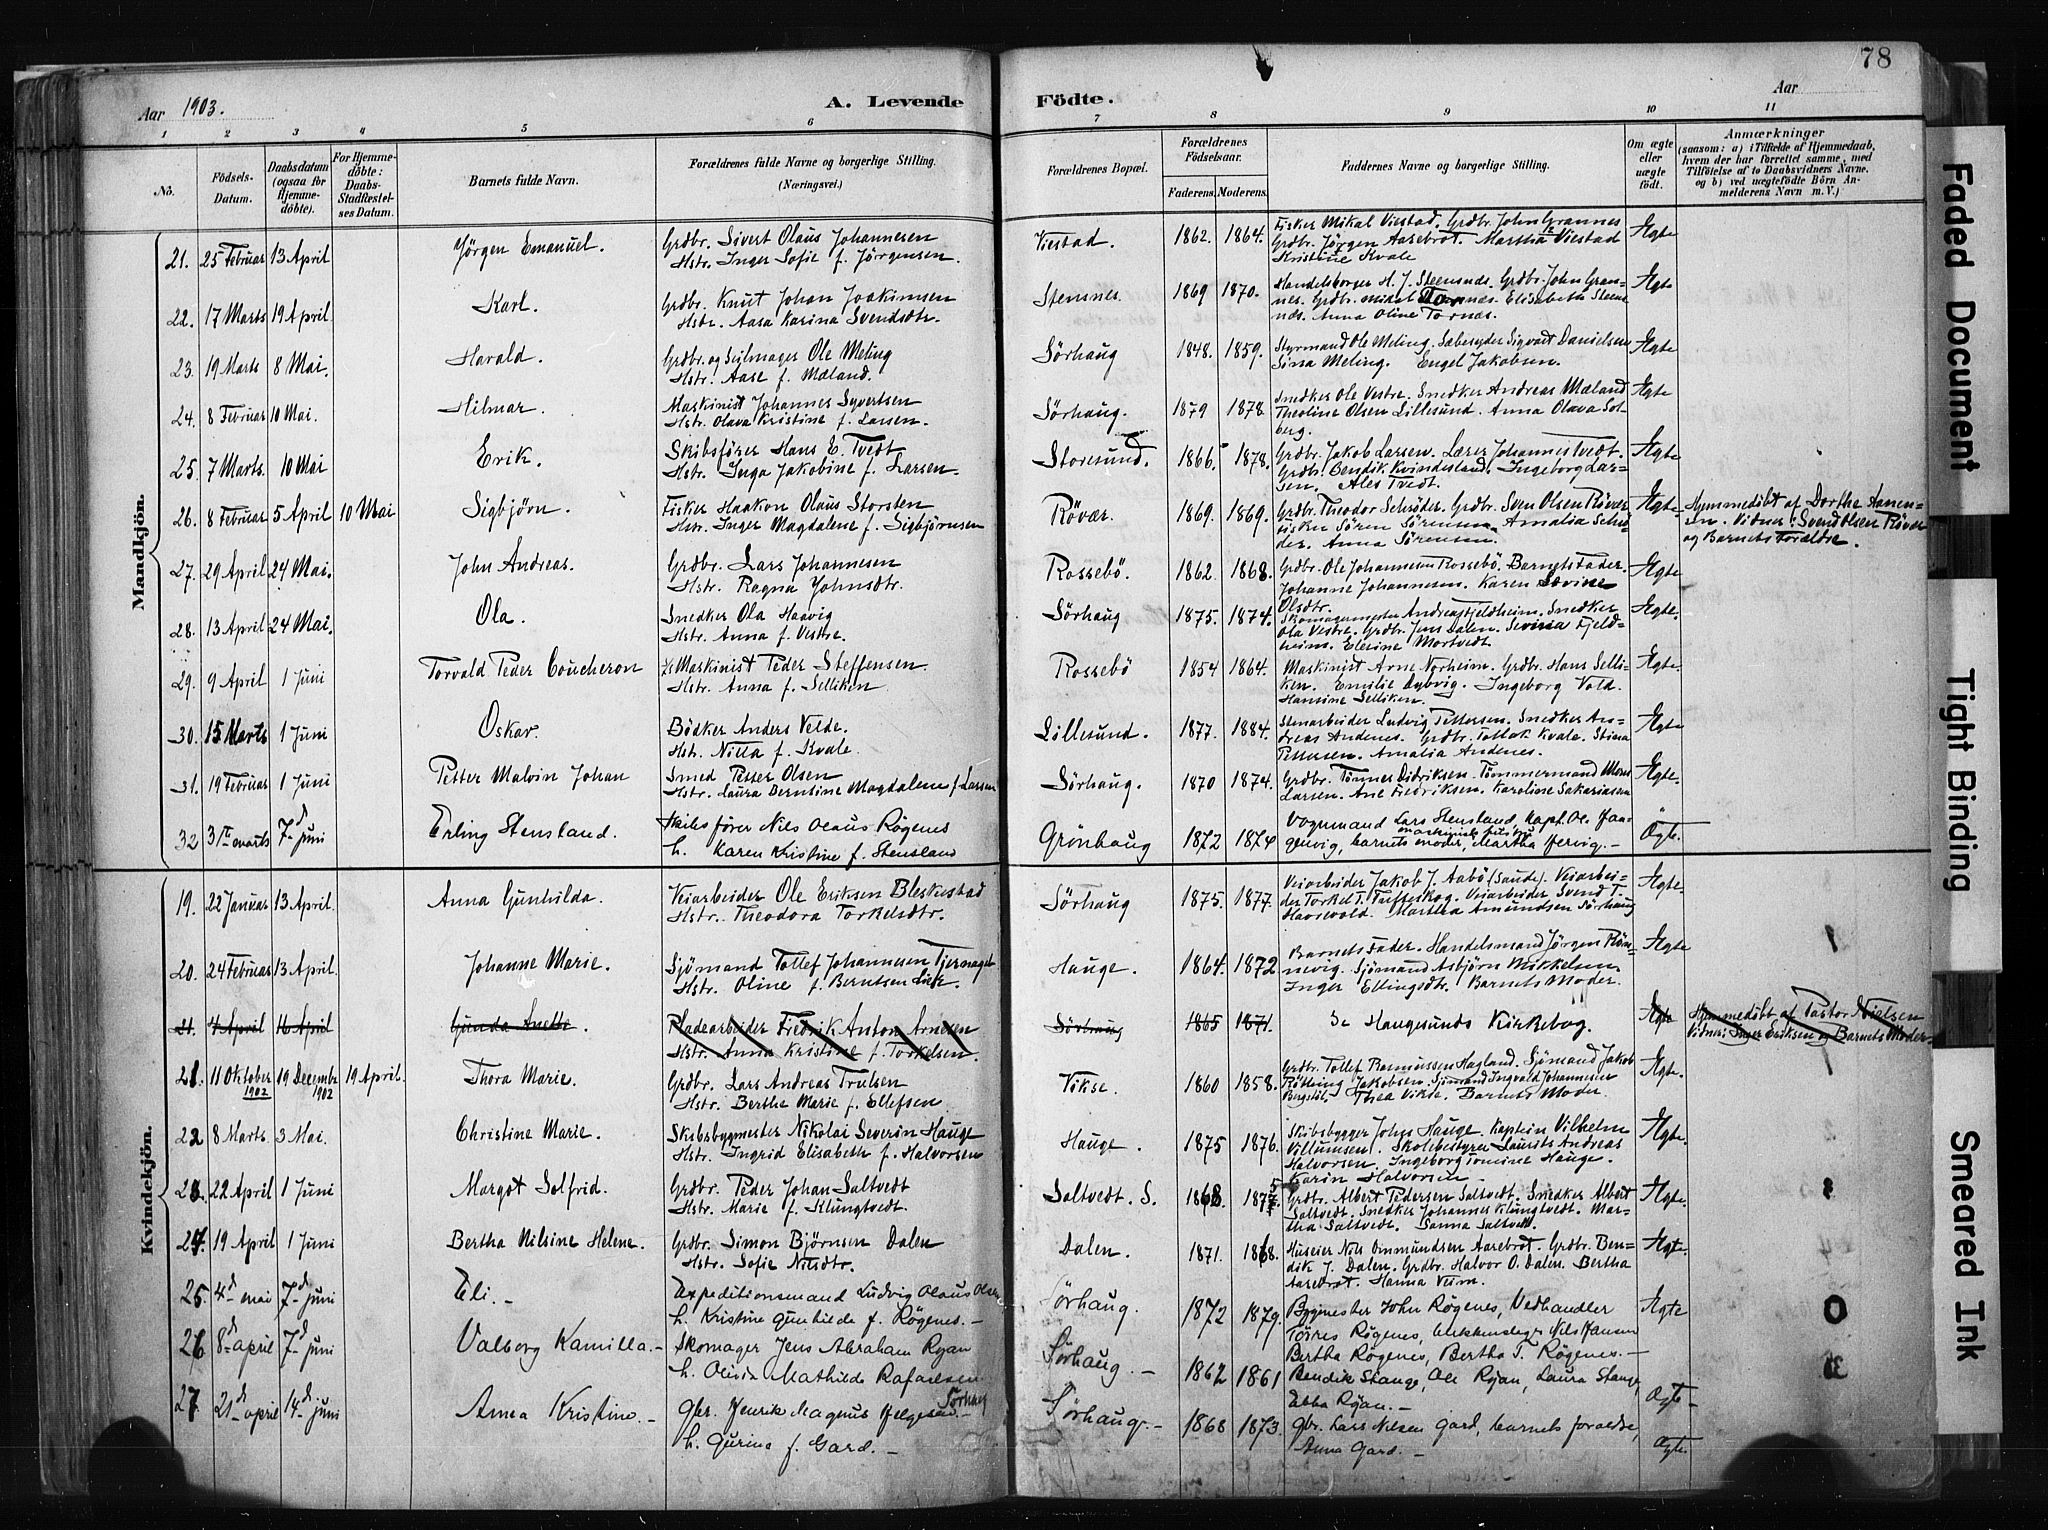 78
Aar 1903.
A. Levende Födte.
Aar
1 2 3 4 5 6 7 8 9 10 11
No. Födsels-Datum. Daabsdatum (ogsaa for Hjemme-döbte). For Hjemme-döbte: Daabs-Stadfæstel-ses Datum. Barnets fulde Navn. Forældrenes fulde Navne og borgerlige Stilling. (Næringsvei.) Forældrenes Bopæl. Forældrenes Födselsaar. Faderens. Moderens. Faddernes Navne og borgerlige Stilling. Om ægte eller uægte födt. Anmærkninger (saasom: a) i Tilfælde af Hjemmedaab, hvem der har forrettet samme, med Tilföielse af to Daabsvidners Navne. og b) ved uægtefödte Börn An-melderens Navn m. V.)
Mandkjön.
21. 25 Februar 13 April Jörgen Emanuel. Grdbr. Sivert Olaus Johannesen Viestad. 1862. 1864. Fisker Mikal Viestad. Grdbr. John Grannes Ægte
Hstr. Inger Sofie f. Jörgensen. Grdbr. Jörgen Aarebrot. Martha Viestad
Kristine Kvale
22. 17 Marts 19 April Karl. Grdbr. Knut Johan Joakimsen Stemnes. 1869 1870. Handelsborger H. J. Steensnæs. Grdbr. John Gran- Ægte
Hstr. Aasa Karina Svendsdtr. nes. Grdbr. Mikal Tornæs. Elisabeth Steens-
næs. Anna Oline Tornæs.
23. 19 Marts 8 Mai. Harald. Grdbr. og Seilmager Ole Meling Sörhaug 1848. 1859. Styrmand Ole Meling. Sæbesyder Sigvart Danielsen Ægte
Hstr. Aase f. Mæland. Sina Meling. Engel Jakobsen.
24. 8 Februar 10 Mai. Hilmar. Maskinist Johannes Syvertsen Sörhaug. 1879 1878. Snedker Ole Vestre. Snedker Andreas Mæland Ægte
Hstr. Olava Kristine f. Larsen. Theoline Olsen Lillesund. Anna Olava Sol-
berg.
25. 7 Marts. 10 Mai Erik. Skibsförer Hans E. Tvedt Storesund. 1866. 1878. Grdbr. Jakob Larsen. Lærer Johannes Tvedt. Ægte.
Hstr. Inga Jakobine f. Larsen. Grdbr. Bendik Kvindesland. Ingeborg Lar-
sen. Ales Tvedt.
26. 8 Februar 5 April 10 Mai Sigbjörn. Fisker Haakon Olaus Storsten Rövær. 1869. 1869. Grdbr. Theodor Schröder. Grdbr. Sven Olsen Rövær Ægte. Hjemmedöbt af Dorthe Hansen-
Hstr. Inger Magdalene f. Sigbjörnsen Fisker Sören Sörensen. Amalia Schrö- Vidner: Svend Olsen Rövær
der. Anna Sörensen. og Barnets Forældre.
27. 29 April 24 Mai. John Andreas. Grdbr. Lars Johannesen Rossebö. 1862. 1868. Grdbr. Ole Johannesen Rossebö. Barnets Fader. Ægte
Hstr. Ragna Johnsdtr. Johanne Johannesen. Karen Lovine
Olsdtr.
28. 13 April 24 Mai. Ola. Snedker Ola Haavig Sörhaug 1875. 1874. Skomagermester Andreas Fjeldheim. Snedker Ægte.
Hstr. Anna f. Vestre. Ola Vestre. Grdbr. Jens Dalen. Sevina Fjeld-
heim. Elerine Mortvedt
29. 9 April 1 Juni Torvald Peder Coucheron Maskinist Peder Steffensen. Rossebö 1854 1864. Maskinist Arne Norheim. Grdbr. Hans Selli- Ægte.
Hstr. Anna f. Selliken. ken. Emilie Dybvig. Ingeborg Vold.
Hansine Selliken.
30. 15 Marts 1 Juni Oskar. Bödker Anders Velde. Lillesund. 1877. 1884. Stenarbeider Ludvig Pettersen. Snedker An- Ægte
Hstr. Nilla f. Kvale. dreas Andenes. Grdbr. Tollak Kvale. Stina
Pettersen. Amalia Andenes.
31. 19 Februar 1 Juni Petter Malvin Johan Smed Petter Olsen Sörhaug. 1870 1874. Grdbr. Tönnes Didriksen. Tömmermand Mons Ægte.
Hstr. Laura Berntine Magdalene f. Larsen Larsen. Ane Fredriksen. Karoline Sakariasen
32 31te marts 7d juni Erling Stensland. Skibsförer Nils Olaus Røgenes Grönhaug 1872 1874 Vognmand Lars Stensland, Kapt. Ol. Haa- Ægte.
h. Karen Kristine f. Stensland genvig, barnets moder, Martha Hervig.
Kvindekjön.
19. 22 Januar 13 April. Anna Gunhilda. Veiarbeider Ole Eriksen Bleskestad Sörhaug 1875. 1877. Veiarbeider Jakob J. Aabö (Saude). Veiarbei- Ægte.
Hstr. Theodora Torkelsdtr. der Torkel T. Tufteskog. Veiarbeider Svend T.
Havrevold. Martha Amundsen Sörhaug
20. 24 Februar 13 April. Johanne Marie. Sjömand Tollef Johannesen Tjernagel Hauge. 1864. 1872 Barnets Fader. Handelsmand Jörgen Rön- Ægte
Hstr. Oline f. Berntsen Liek. nevig. Sjömand Asbjörn Mikkelsen.
Inger Ellingsdtr. Barnets Moder.
21. 4 April 16 April Gunda Anette. Pladearbeider Fredrik Anton Arnesen Sörhaug 1865 1871. Se Haugesunds Kirkebog. Ægte Hjemmedöbt af Pastor Nielsen
Hstr. Anna Kristine f. Torkelsen. Vidner: Inger Eriksen og Barnets Moder.
21. 11 Oktober 1902 19 Decembr 1902 19 April. Thora Marie. Grdbr. Lars Andreas Trulsen Vikse. 1860 1858. Grdbr. Tollef Rasmussen Hagland. Sjömand Jakob Ægte.
Hstr. Berthe Marie f. Ellefsen Rötting Jakobsen. Sjömand Ingvald Johannesen
Bergstöl. Thea Vikse. Barnets Moder.
22 8 Marts. 3 Mai. Christine Marie. Skibsbygmester Nikolai Severin Hauge Hauge. 1875 1876. Skibsbygger Johs Hauge. Kaptein Vilhelm Ægte.
Hstr. Ingrid Elisabeth f. Halvorsen Villumsen. Skolebestyrer Laurits Andreas
Halvorsen. Ingeborg Tomine Hauge.
Karin Halvorsen.
23. 22 April 1 Juni Margot Solfrid. Grdbr. Peder Johan Saltvedt Saltvedt. S. 1868. 1875. Grdbr. Albert Pedersen Saltvedt. Snedker Albert Ægte.
Hstr. Marie f. Klungtvedt. Saltvedt. Snedker Johannes Klungtvedt. Mar-
tha Saltvedt. Sanna Saltvedt.
24. 19 April 1 Juni Bertha Nilsine Helene. Grdbr. Simon Björnsen Dalen Dalen. 1871. 1868. Huseier Nils Ommundsen Aarebrot. Grdbr. Ben- Ægte.
Hstr. Sofie Nilsdtr. dik J. Dalen. Grdbr. Halvor O. Dalen. Bertha
Aarebrot. Hanna Veim.
25 4d mai 7d juni Eli. Expeditionsmand Ludvig Olaus Olsen Sørhaug. 1872 1879. Bygmester John Røgenes, Vedhandler Ægte
h. Kristine Gunhilde f. Røgenes. Tørres Røgenes, Nils Hansen
Bertha Røgenes, Bertha T. Røgenes.
26 8d april 7d juni Valborg Kamilla. Skomager Jens Abraham Ryan Sørhaug. 1862 1861 Bendik Stange, Ole Ryan, Laura Stange, Ægte
h. Olivia Mathilde Rafaelsen Ebba Ryan.
27 21d april 14d juni Anna Kristine. gbr. Henrik Magnus Helgesen Sørhaug Sørhaug. 1868 1873. gbr. Lars Nilsen Gard, barnets forældre, Ægte.
h. Gurina f. Gard. Anna Gard.
Faded Document
Tight Binding
Smeared Ink